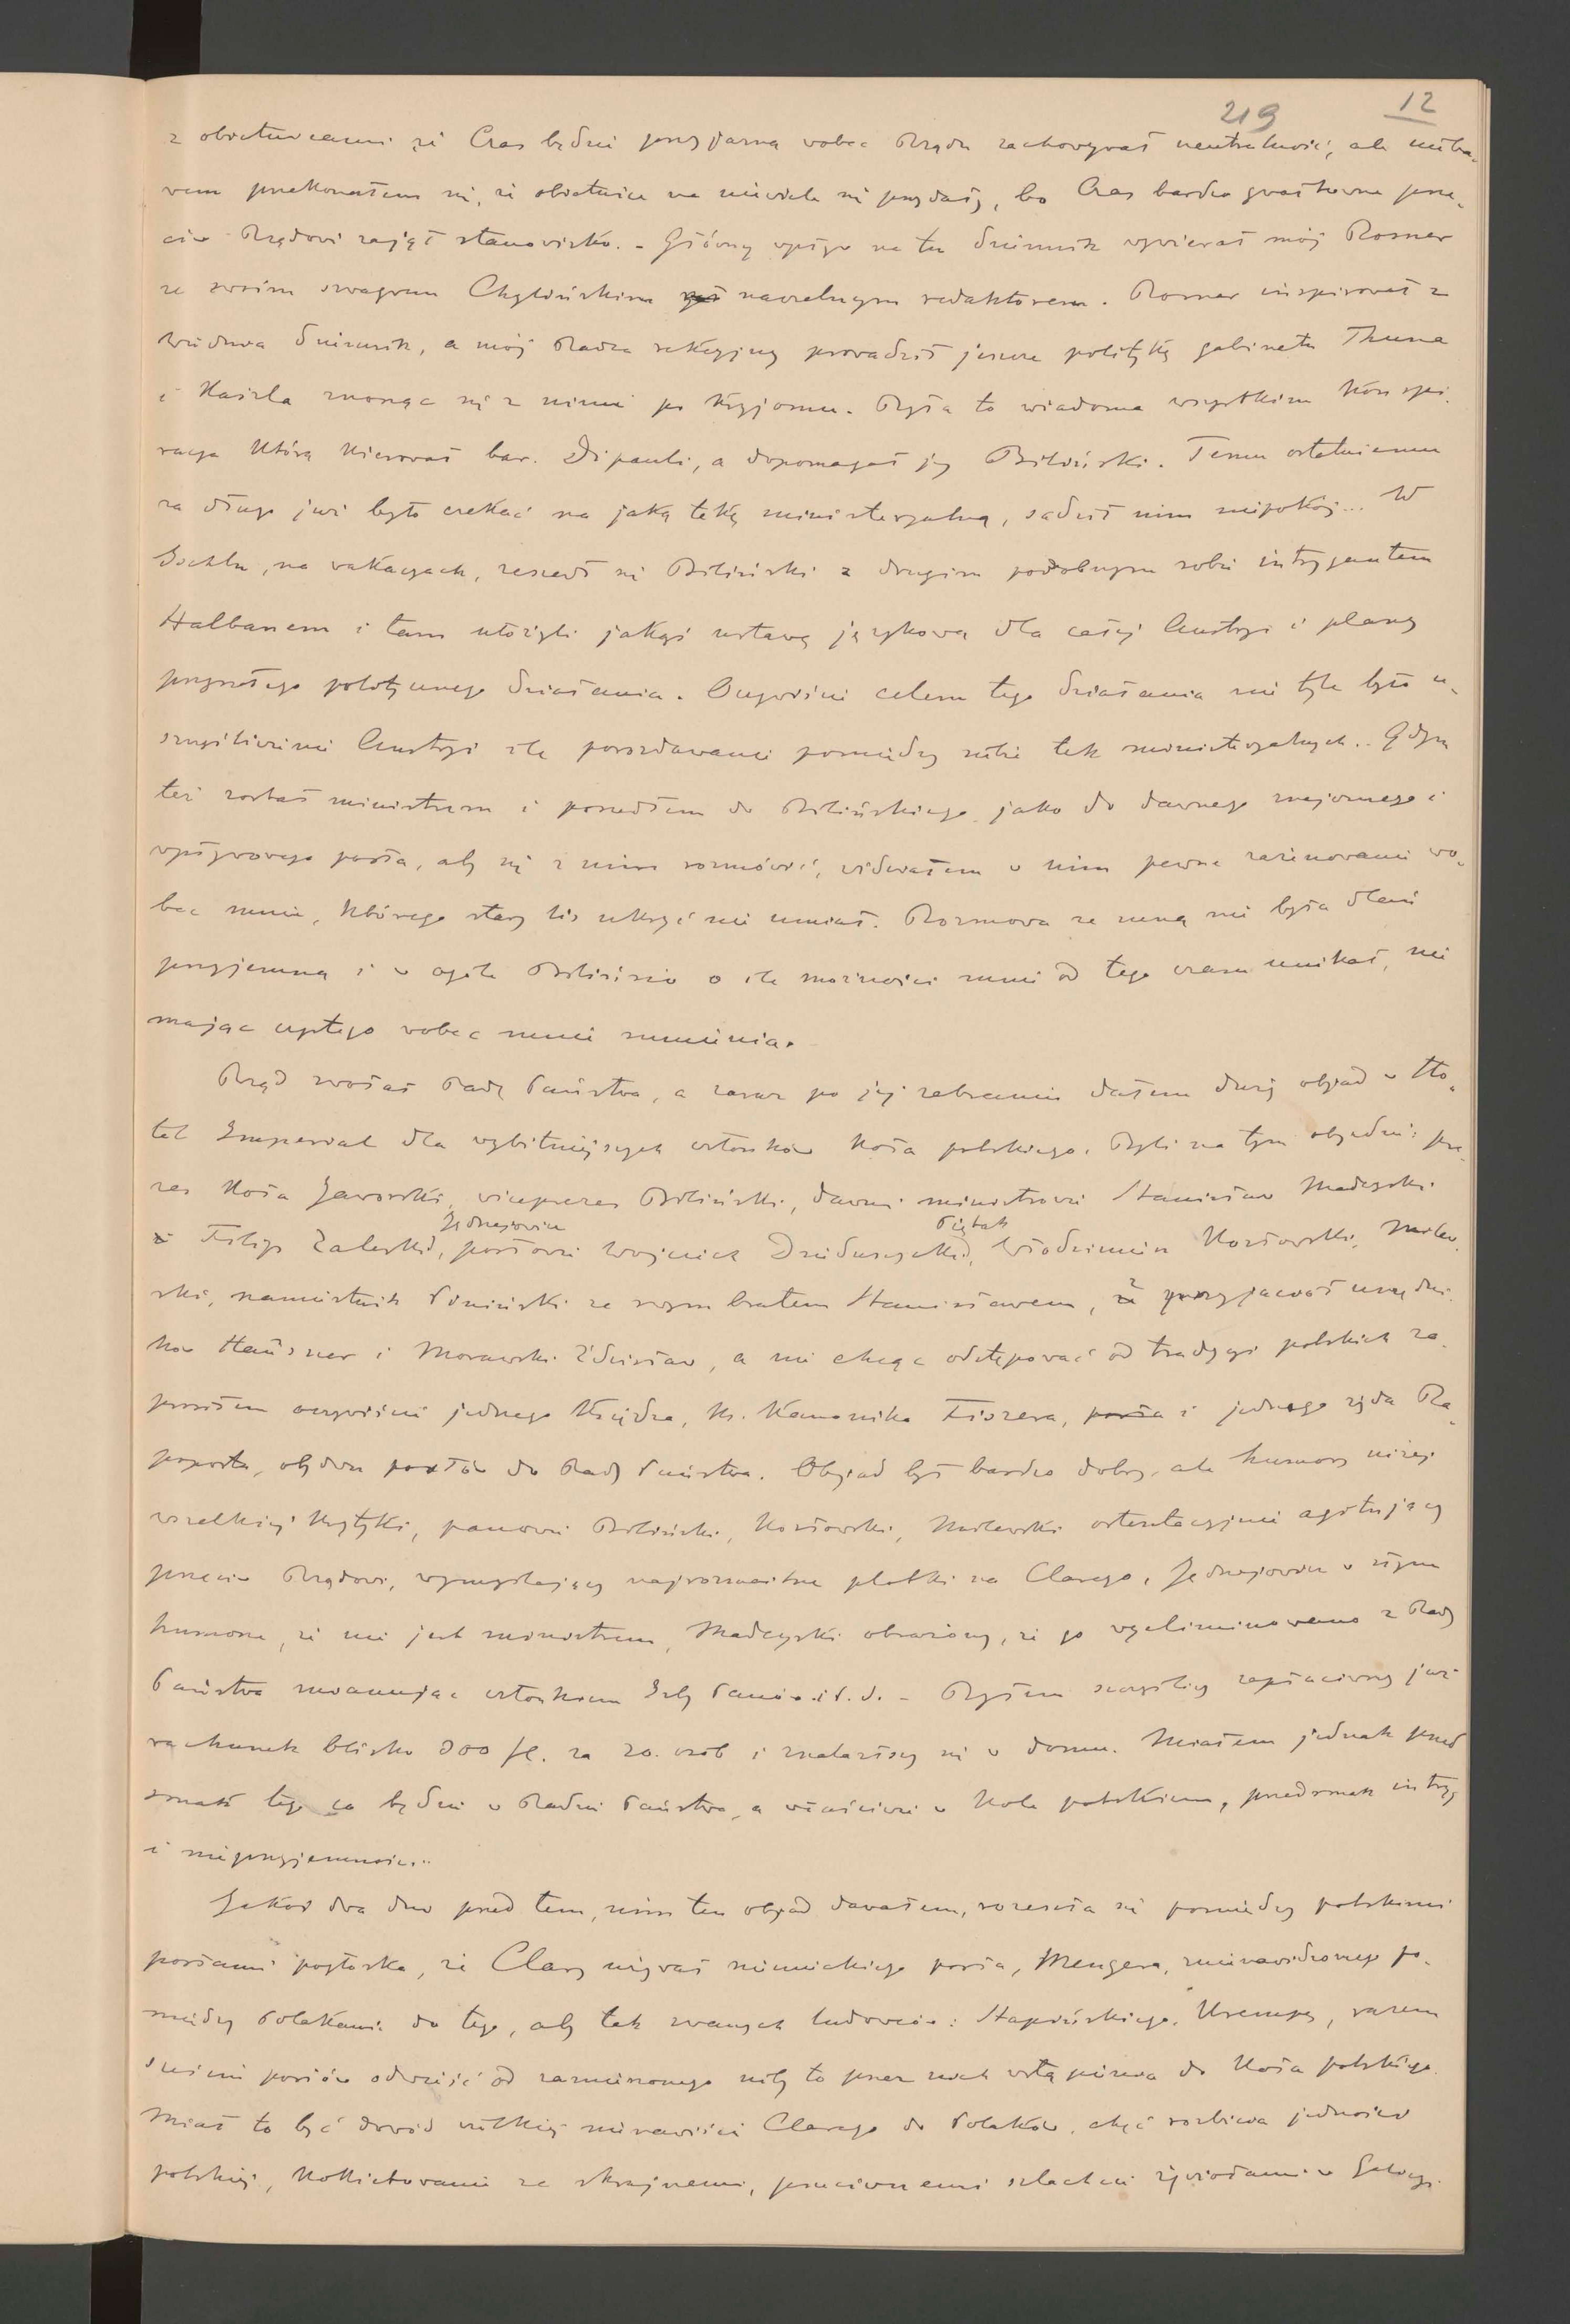 219 12
z obietnicami że Czas będzie przyjazną wobec Rządu zachowywał neutralność, ale nieba-
wem przekonałem się, że obietnice na niewiele się przydały, bo Czas bardzo gwałtowne prze-
ciw Rządowi zajął stanowisko. - Główny wpływ na ten dziennik wywierał mój Rosner
ze swoim szwagrem Chylińskim naczelnym redaktorem. Rosner inspirował z
Wiednia dziennik, a mój Radca sekcyjny prowadził jeszcze politykę gabinetu Thuna
i Kaizla znosząc się z nimi po kryjomu. Była to wiadoma wszystkim konspi-
racya którą kierował bar. Dipauli, a dopomagał jej Biliński. Temu ostatniemu
za długo już było czekać na jaką tekę ministeryalną, rządził nim niepokój... W
Ischlu, na wakacyach, zeszedł się Biliński z drugim podobnym sobie intrygantem
Halbanem i tam ułożyli jakąś ustawę językową dla całej Austryi i plany
przyszłego politycznego działania. Oczywiście celem tego działania nie tyle było u-
szczęśliwienie Austryi ile porozdawanie pomiędzy siebie tek ministeryalnych.. Gdym
też został ministrem i poszedłem do Bilińskiego jako do dawnego znajomego i
wpływowego posła, aby się z nim rozmówić, widziałem w nim pewne zażenowanie wo-
bec mnie, którego stary lis ukryć nie umiał. Rozmowa ze mną nie była dlań
przyjemną i w ogóle Biliński o ile możności mnie od tego czasu unikał, nie
mając czystego wobec mnie sumienia.
Rząd zwołał Radę Państwa, a zaraz po jej zebraniu dałem duży objad w Ho-
tel Imperial dla wybitniejszych członków Koła polskiego. Byli na tym objedzie: pre-
zes Koła Jaworski, viceprezes Biliński, dawni ministrowie Stanisław Madeyski
Jędrzejowicz Piętak
i Filip Zaleski, posłowie Wojciech Dzieduszycki, Włodzimierz Kozłowski, Milew-
ski, namiestnik Piniński ze swym bratem Stanisławem, z przyjaciół urzędni-
ków Hausner i Morawski Zdzisław, a nie chcąc odstępować od tradycyi polskich za-
prosiłem oczywiście jednego księdza, ks. Kanonika Fiszera, i jednego żyda Ra-
poporta, obydwu posłów do Rady Państwa. Objad był bardzo dobry, ale humory niżej
wszelkiej krytyki, panowie Biliński, Kozłowski, Milewski ostentacyjnie agitujący
przeciw Rządowi, wymyślający najrozmaitsze plotki na Clarego, Jędrzejowicz w złym
humorze, że nie jest ministrem, Madeyski obrażony, że go wyeliminowano z Rady
Państwa mianując członkiem Izby Panów i t. d. - Byłem szczęśliwy zapłaciwszy już
rachunek blisko 300 fl. za 20. osób i znalazłszy się w domu. Miałem jednak przed-
smak tego co będzie w Radzie Państwa, a właściwie w Kole polskiem, przedsmak intryg
i nieprzyjemności...
Jakoś dwa dni przed tem, nim ten objad dawałem, rozeszła się pomiędzy polskimi
posłami pogłoska, że Clary używał niemieckiego posła, Mengera, znienawidzonego po-
między Polakami do tego, aby tak zwanych ludowców: Stapińskiego, Krempę, razem
sześciu posłów odwieść od zamierzonego niby to przez nich wstąpienia do Koła polskiego.
Miał to być dowód wielkiej nienawiści Clarego do Polaków, chęć rozbicia jedności
polskiej, kokietowanie ze skrajnemi, przeciwnemi szlachcie żywiołami w Galicyi.